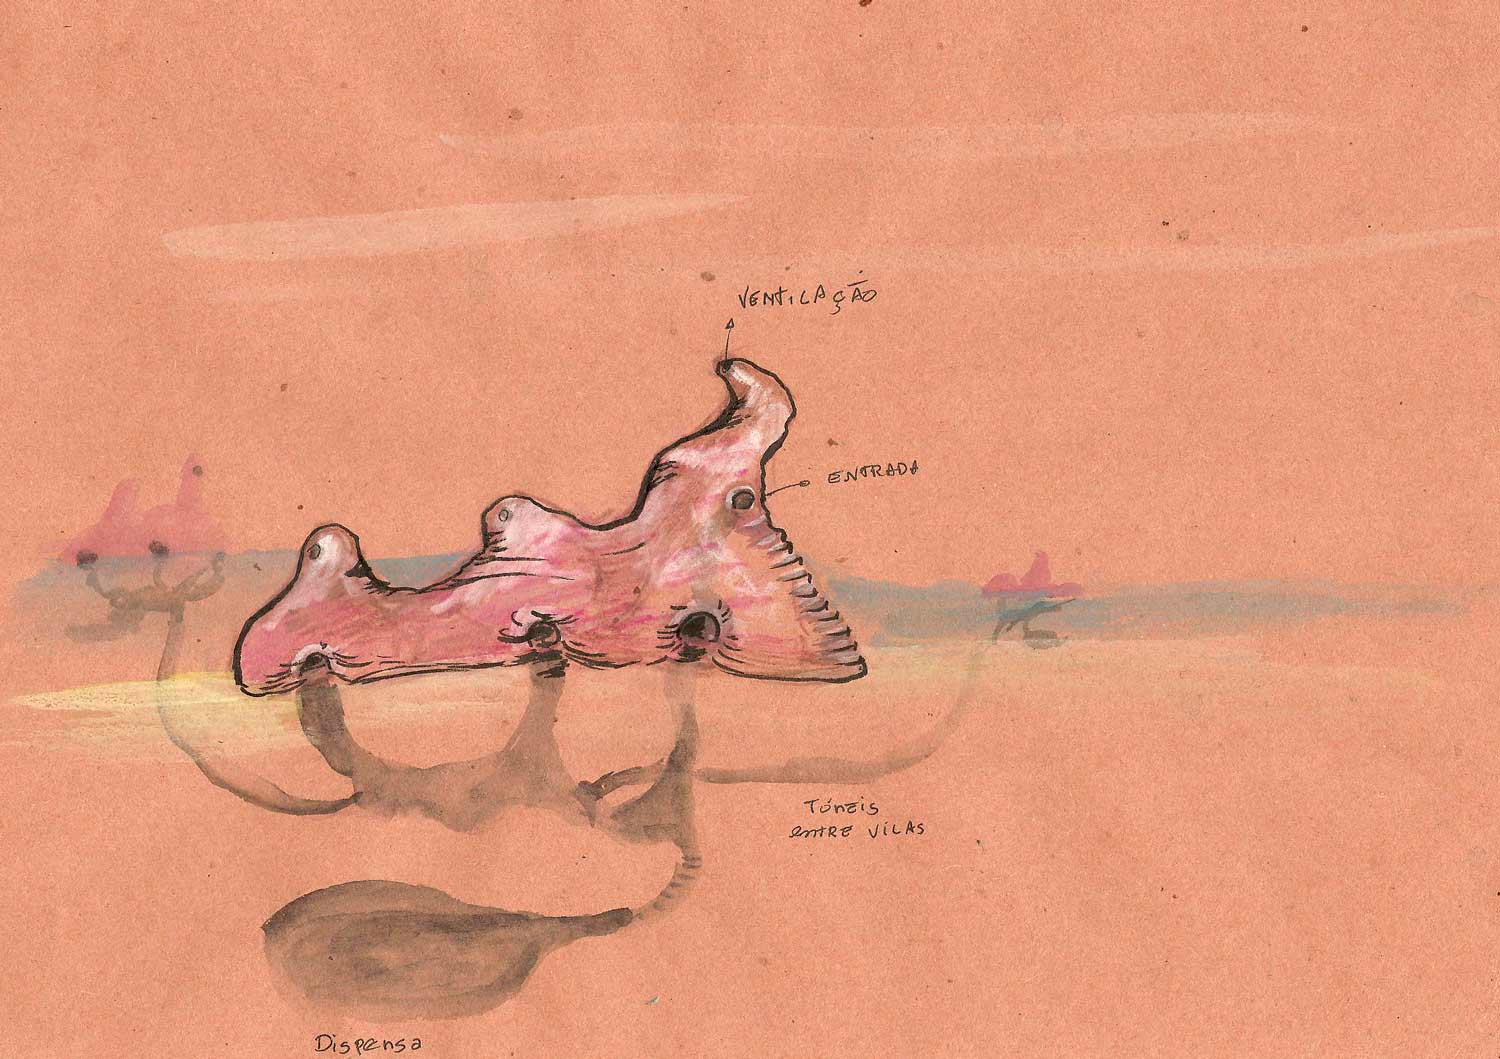 VENTILAÇÃO
ENTRADA
Túneis
entre VILAS
Dispensa